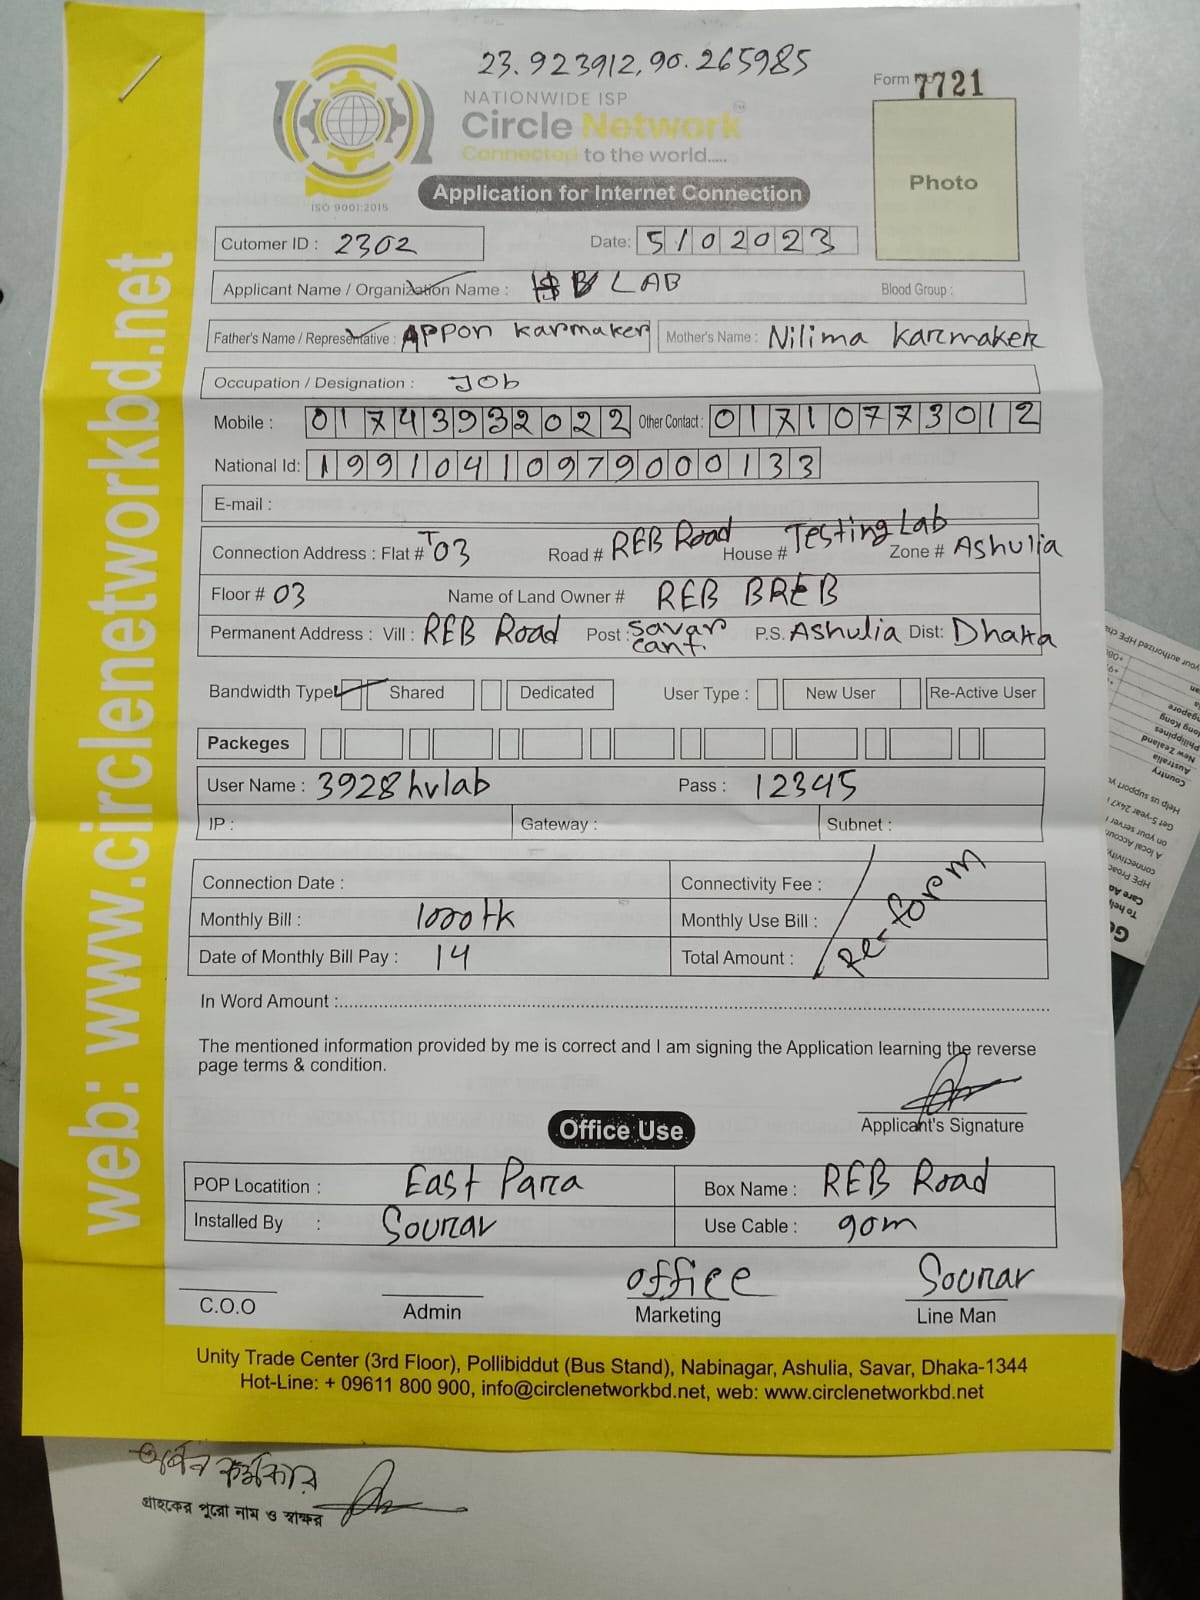 23.923912, 90.265985
Form 7721
NATIONWIDE ISP
Circle Network™
Connected to the world.....
ISO 9001:2015
Application for Internet Connection
Photo
Cutomer ID : 2302 Date: 5/02023
Applicant Name / Organization Name : B LAB Blood Group :
Father's Name / Representative : APPon karmaker Mother's Name : Nilima karmaker
Occupation / Designation : Job
Mobile : 01743932022 Other Contact : 01710773012
National Id: 19910410979000133
E-mail :
Connection Address : Flat # T03 Road # REB Road House # Testing Lab Zone # Ashulia
Floor # 03 Name of Land Owner # REB BREB
Permanent Address : Vill : REB Road Post : Savar cant. P.S. Ashulia Dist: Dhaka
Bandwidth Type Shared Dedicated User Type : New User Re-Active User
Packeges
User Name : 3928hvlab Pass : 12345
IP : Gateway : Subnet :
Connection Date : Connectivity Fee :
Monthly Bill : 1000tk Monthly Use Bill :
Date of Monthly Bill Pay : 14 Total Amount :
Re-form
In Word Amount :
The mentioned information provided by me is correct and I am signing the Application learning the reverse
page terms & condition.
Applicant's Signature
Office Use
POP Locatition : East Para Box Name : REB Road
Installed By : Sourav Use Cable : 90m
office Sourav
C.O.O Admin Marketing Line Man
Unity Trade Center (3rd Floor), Pollibiddut (Bus Stand), Nabinagar, Ashulia, Savar, Dhaka-1344
Hot-Line: + 09611 800 900, info@circlenetworkbd.net, web: www.circlenetworkbd.net
web: www.circlenetworkbd.net
অর্পন কর্মকার
গ্রাহকের পুরো নাম ও স্বাক্ষর